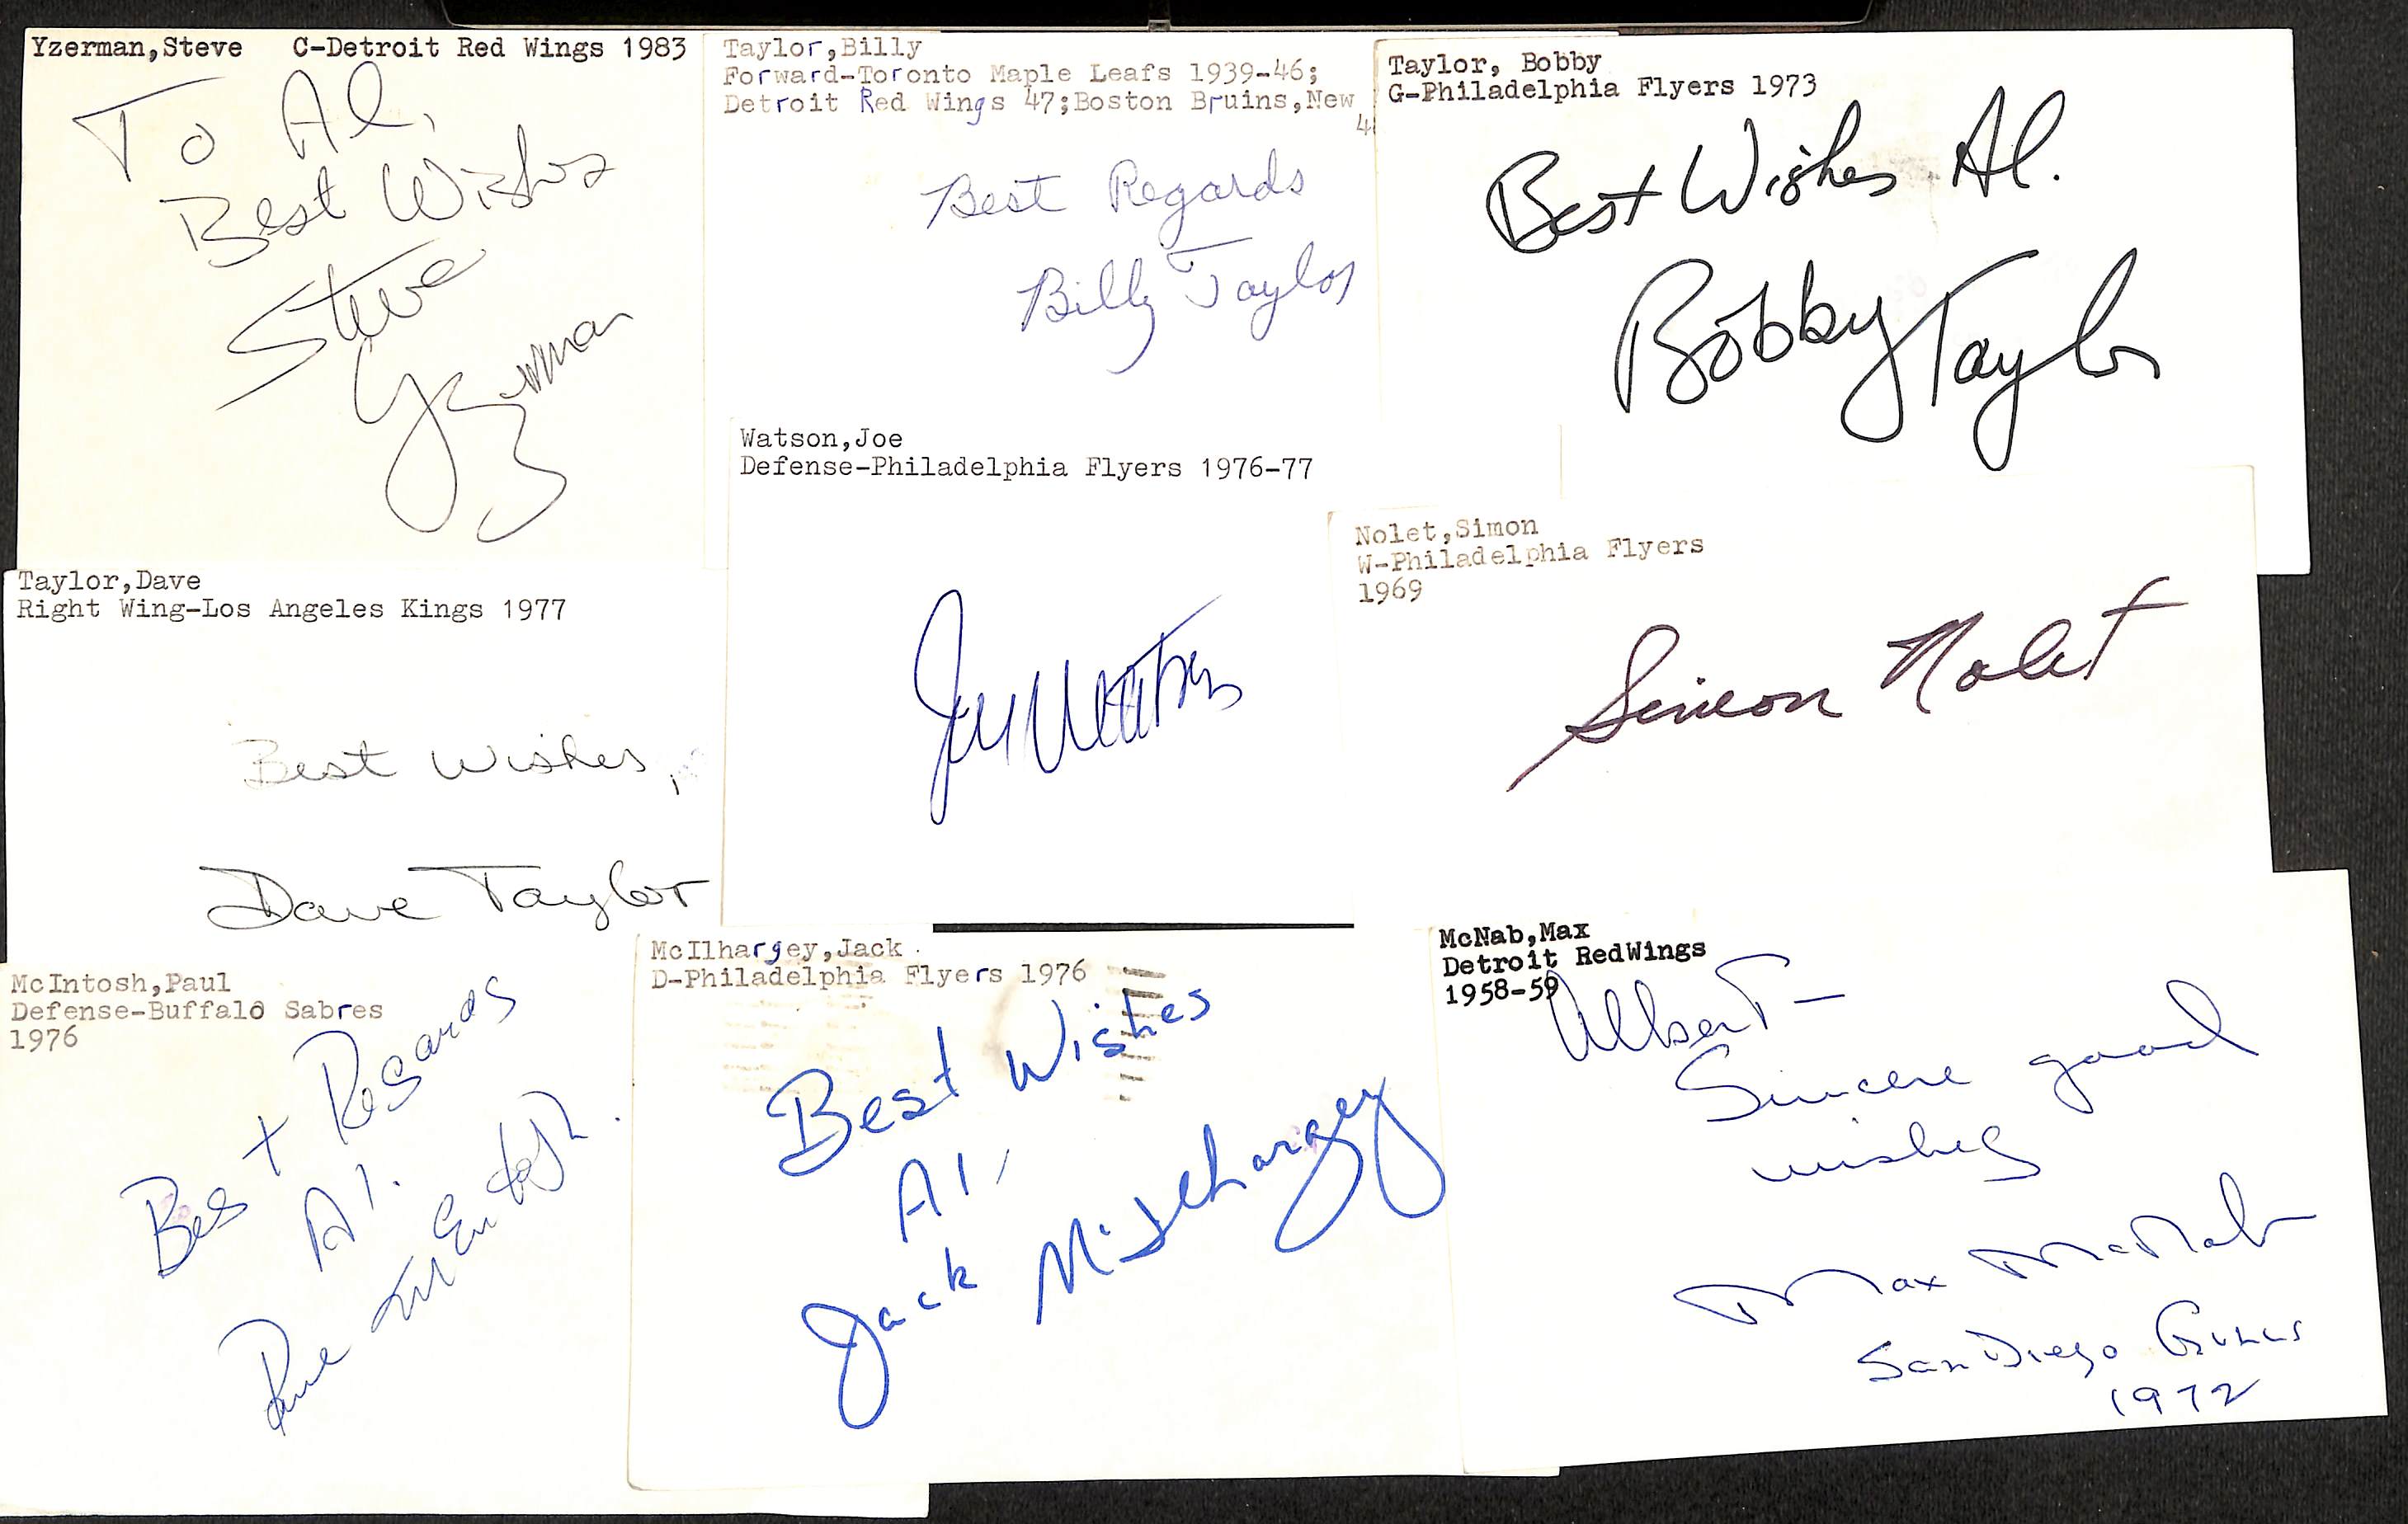 Yzerman,Steve   C-Detroit Red Wings 1983
To Al,
Best Wishes
Steve
Yzerman
Taylor,Billy
Forward-Toronto Maple Leafs 1939-46;
Detroit Red Wings 47;Boston Bruins,New
4
Best Regards
Billy Taylor
Taylor, Bobby
G-Philadelphia Flyers 1973
Best Wishes Al.
Bobby Taylor
Taylor,Dave
Right Wing-Los Angeles Kings 1977
Best Wishes,
Dave Taylor
Watson,Joe
Defense-Philadelphia Flyers 1976-77
Joe Watson
Nolet,Simon
W-Philadelphia Flyers
1969
Simon Nolet
McIntosh,Paul
Defense-Buffalo Sabres
1976
Best Regards
Al.
Paul McIntosh
McIlhargey,Jack
D-Philadelphia Flyers 1976
Best Wishes
Al,
Jack McIlhargey
McNab,Max
Detroit RedWings
1958-59
Albert-
Sincere good
wishes
Max McNab
San Diego Gulls
1972